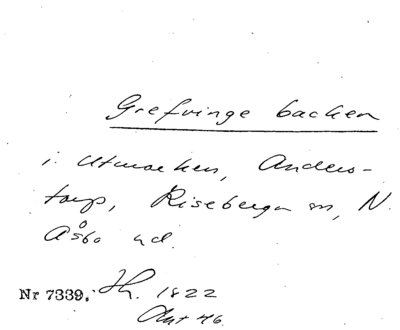 Grefvinge backen
i Utmarken, Anders-
torp, Riseberga sn, N.
Åsbo hd.
Nr 7339. Th. 1822
Akt 46